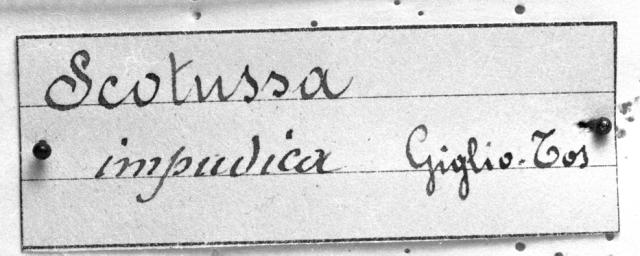 Scotussa
impudica Giglio-Tos